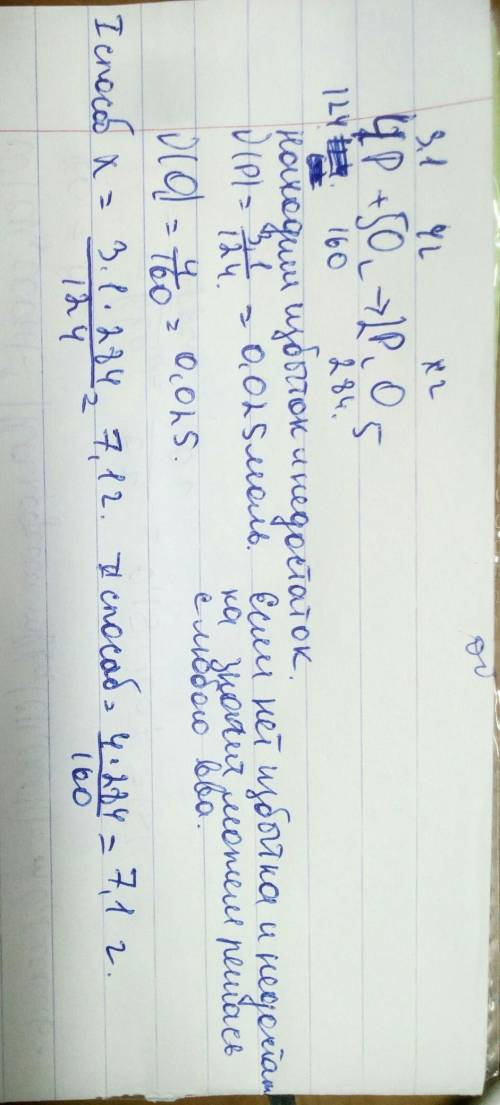 3.1 4г xг
4P + 5O₂ → 2P₂O5
124. 160 284.
находим избыток и недостаток.
ν(P) = 3,1/124. = 0,025 моль. Если нет избытка и недостат
ка значит можем решать
ν(O) = 4/160 = 0,025. с любого в-ва.
I способ x = 3.1 · 284/124 = 7,1г. II способ = 4·284/160 = 7,1 г.